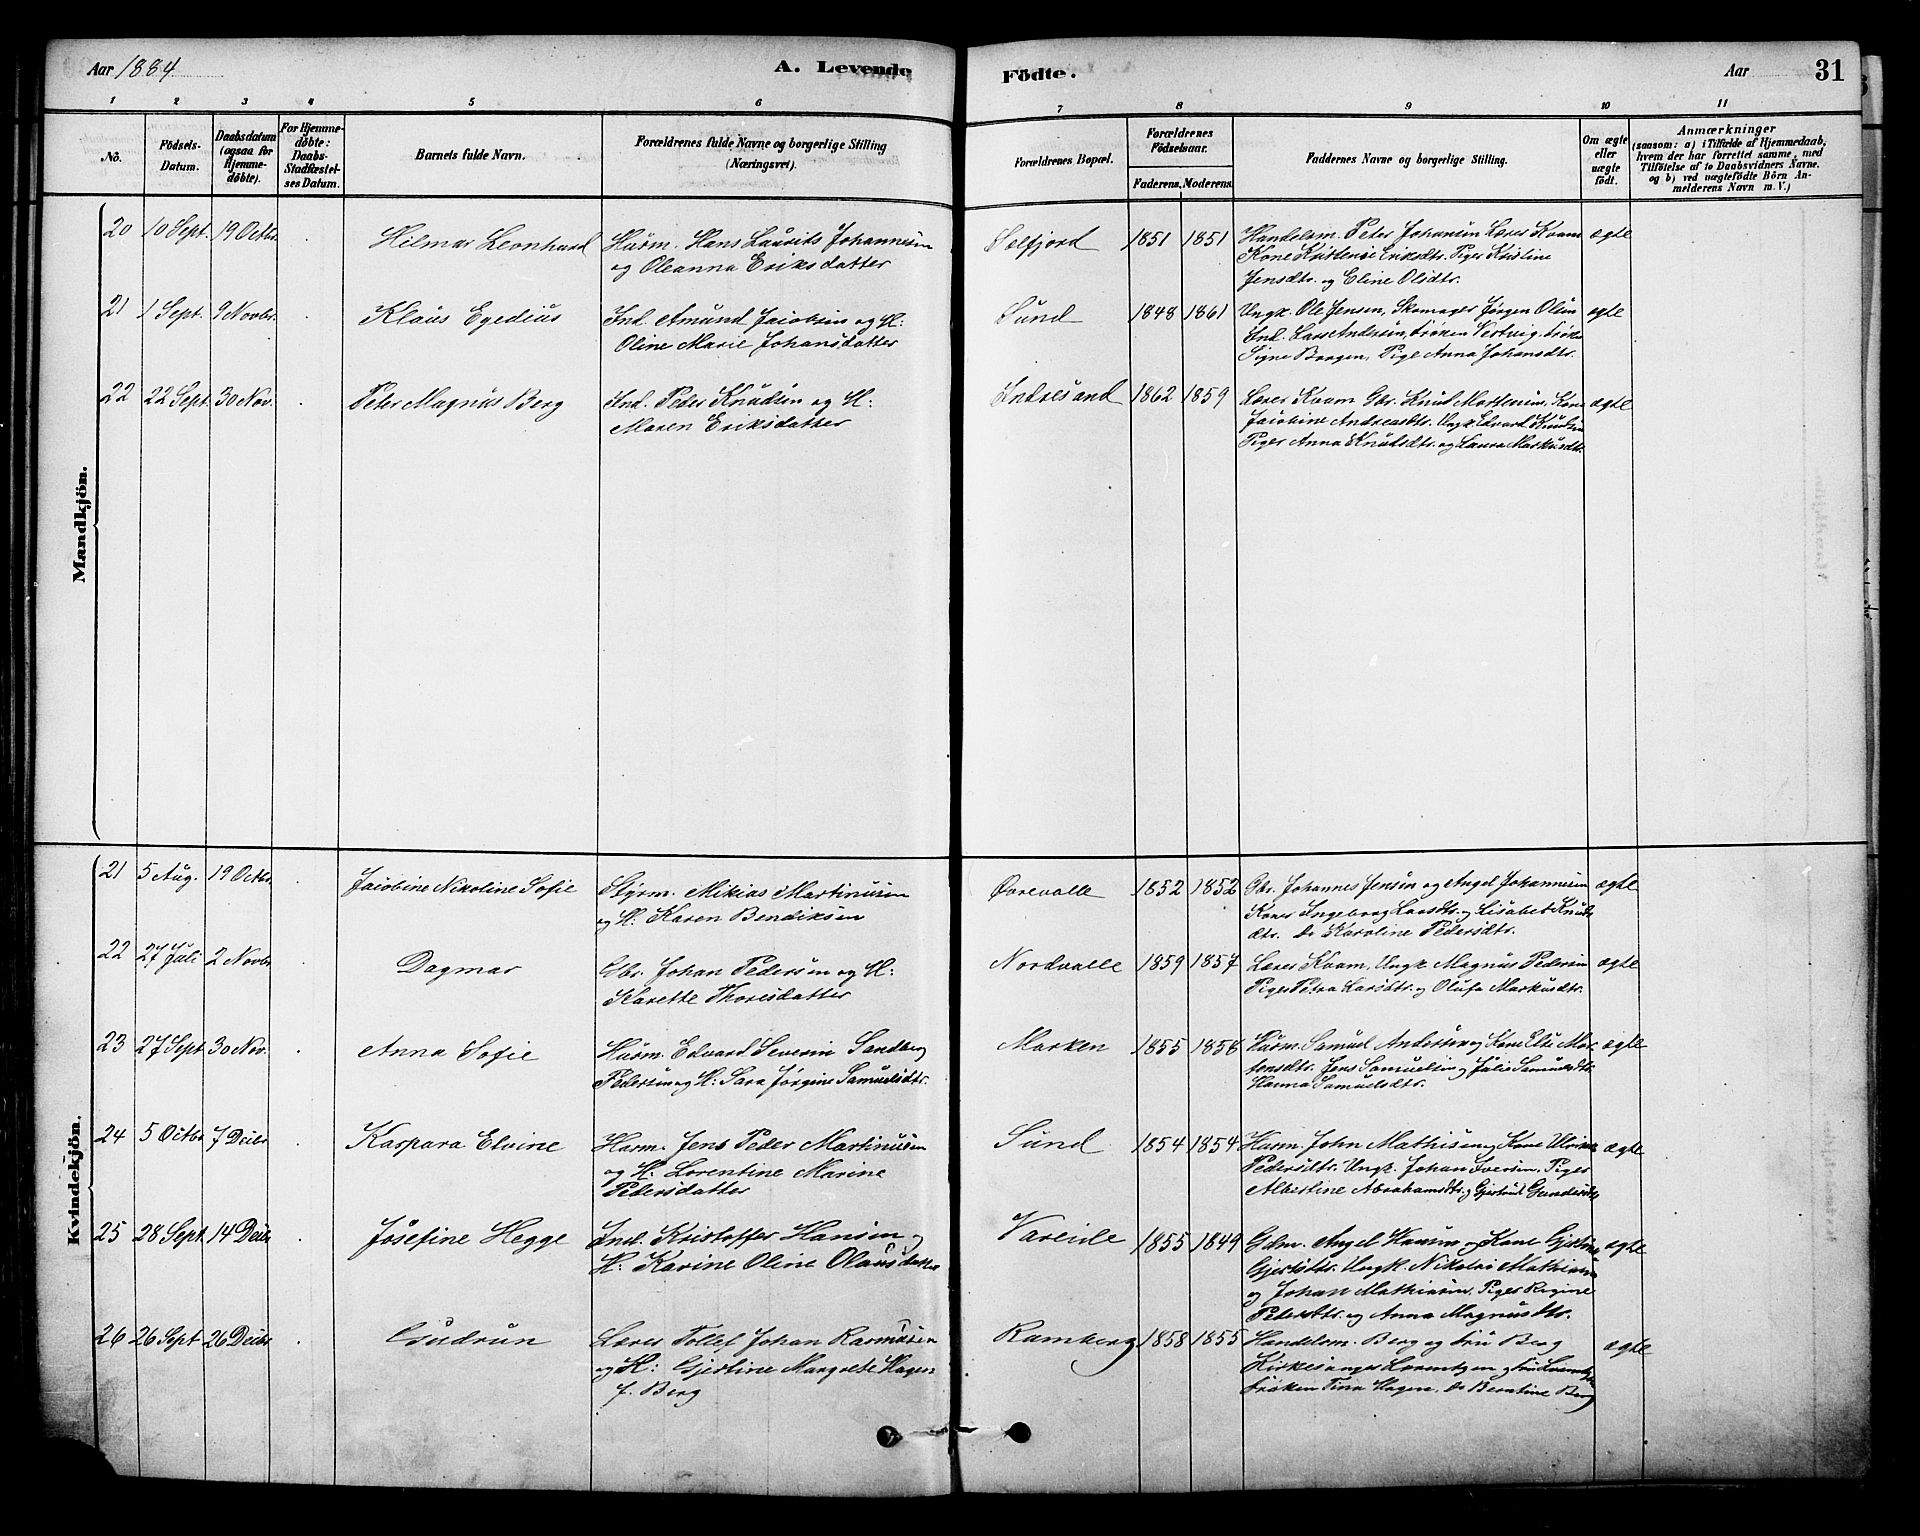 Aar 1884
A. Levende
Fødte.
Aar
31
1 2 3 4 5 6 7 8 9 10 11
No.
Fødsels-
Datum.
Daabsdatum
(ogsaa for
Hjemme-
døbte).
For Hjemme-
døbte:
Daabs-
Stadfæstel-
ses Datum.
Barnets fulde Navn.
Forældrenes fulde Navne og borgerlige Stilling
(Næringsvei).
Forældrenes Bopæl.
Forældrenes
Fødselsaar.
Faderens. Moderens.
Faddernes Navne og borgerlige Stilling.
Om ægte
eller
uægte
født.
Anmærkninger
(saasom: a) i Tilfælde af Hjemmedaab,
hvem der har forrettet samme, med
Tilføielse af to Daabsvidners Navne.
og b) ved uægtefødte Børn An-
melderens Navn m. V.)
Mandkjön.
20 10 Sept. 19 Octbr. Hilmar Leonhard
Husm. Hans Laurits Johannesen
og Oleanna Eriksdatter
Selfjord 1851 1851
Handelsm. Peter Johansen Lærer Kvam
Kone Kristense Eriksdtr. Piger Kristine
Jensdtr. og Eline Olsdtr.
ægte
21 1 Sept. 9 Novbr. Klaus Egedius
Ind. Amund Jacobsen og H:
Oline Marie Johansdatter
Sund 1848 1861
Ungk. Ole Jensen, Skomager Jørgen Olsen
Ind. Lars Andersen, frøken Hertvig, frøken
Signe Brogen, Pige Anna Johansdtr.
ægte
22 22 Sept. 30 Nov. Peter Magnus Berg
Ind. Peder Knudsen og H:
Maren Eriksdatter
Andresand 1862 1859
Lærer Kvam Gbr. Knud Mortensen, Kone
Jacobine Andreasdtr. Ungk. Edvard Knudsen
Piger Anna Knudsdtr. og Laura Markusdtr.
ægte
Kvindekjön.
21 5 Aug. 19 Octbr. Jacobine Nikoline Sofie
Styrm. Mikias Martinusen
og H: Karen Bendiksen
Vorevalle 1852 1852
Gbr. Johannes Jensen og Angel Johannesen
Koner Ingeborg Larsdtr. og Lisabet Knuds
dtr. do Karoline Pedersdtr.
ægte
22 27 Juli 2 Novbr. Dagmar
Gbr. Johan Pedersen og H:
Karette Thoresdatter
Nordvalle 1859 1857
Lærer Kvam, Ungk. Magnus Pedersen
Piger Petra Larsdtr. og Olufa Markusdtr.
ægte
23 27 Sept 30 Nov. Anna Sofie
Husm. Edvard Severin Sandberg
Pedersen og H: Sara Jørgine Samuelsdtr.
Marken 1855 1856
Husm. Samuel Andersen og Kone Else Mor
tensdtr. Jens Samuelsen og Julie Samuelsdtr.
Hanna Samuelsdtr.
ægte
24 5 Octbr 7 Decbr. Kaspara Elvine
Husm. Jens Peder Martinusen
og H: Lorentine Marine
Pedersdatter
Sund 1854 1854
Husm. John Mathisen og Kone Ulrikke
Pedersdtr. Ungk. Johan Iversen, Piger
Albertine Abrahamsdtr. og Gjertrud Gundersdtr
ægte
25 28 Sept. 14 Decbr. Josefine Hegge
Ind. Kristoffer Hansen og
H: Karine Oline Olausdatter
Vareide 1855 1849
Gdm. Angel Hansen og Kone Gjertine
Gjertsdtr. Ungk. Nikolai Mathisen
og Johan Mathiasen, Piger Regine
Pedersdtr. og Anna Magnusdtr.
ægte
26 26 Sept 26 Decbr Gudrun
Lærer Tollef Johan Rasmusen
og H: Gjertine Margrete Hagen
f. Berg
Ramberg 1858 1855
Handelsm. Berg og fru Berg
Kirkesanger Lorentzen og fru Lorentzen
frøken Tina Hagen, do Berntine Berg
ægte